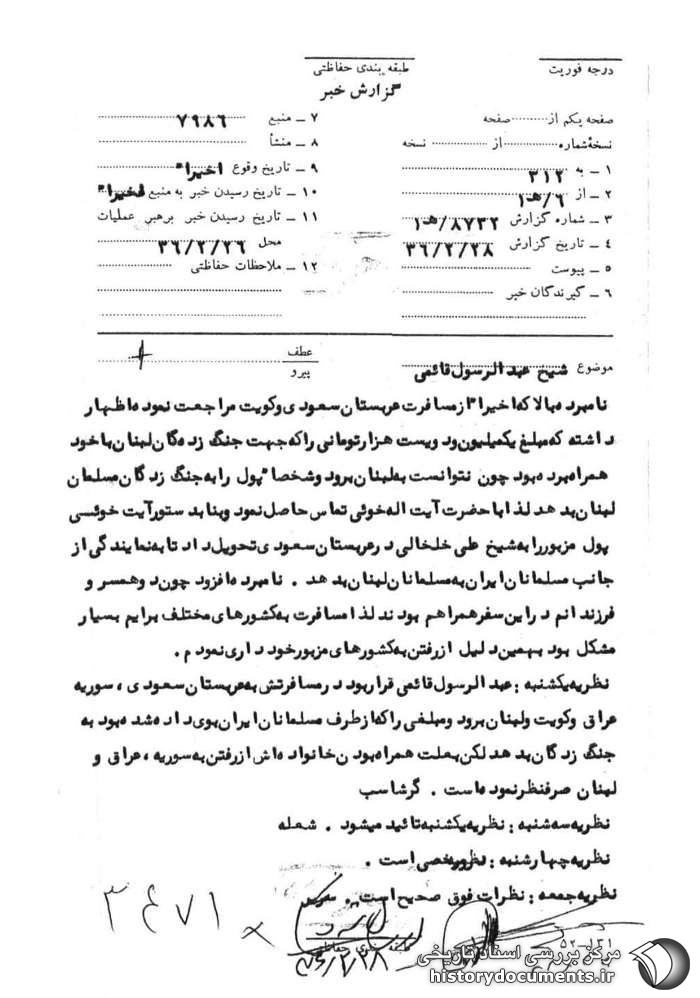 درجه فوریت
طبقه بندی حفاظتی
گزارش خبر
صفحه یکم از .......... صفحه
نسخه شماره .......... از .......... نسخه
۱ ـ به ۳۱۲
۲ ـ از ۶/هـ۱
۳ ـ شماره گزارش ۸۷۳۲/هـ۱
۴ ـ تاریخ گزارش ۳۶/۲/۲۸
۵ ـ پیوست
۶ ـ گیرندگان خبر
۷ ـ منبع ۷۹۸۶
۸ ـ منشأ
۹ ـ تاریخ وقوع اخیرا"
۱۰ ـ تاریخ رسیدن خبر به منبع اخیرا"
۱۱ ـ تاریخ رسیدن خبر برهبر عملیات
محل ۳۶/۲/۲۶
۱۲ ـ ملاحظات حفاظتی
عطف
پیرو
موضوع شیخ عبدالرسول قائمی
نامبرده بالا که اخیرا" از مسافرت عربستان سعودی وکویت مراجعت نموده اظهار
داشته که مبلغ یکمیلیون ودویست هزارتومانی راکه جهت جنگ زده گان لبنان باخود
همراه برده بود چون نتوانست به لبنان برود وشخصا" پول رابه جنگ زدگان مسلمان
لبنان بدهد لذا باحضرت آیت اله خوئی تماس حاصل نمود وبنا بدستورآیت خوئسی
پول مزبوررابه شیخ علی خلخالی درعربستان سعودی تحویل داد تابه نمایندگی از
جانب مسلمانان ایران به مسلمانان لبنان بدهد . نامبرده افزود چون دوهمسر و
فرزندانم دراین سفرهمراهم بودند لذا مسافرت به کشورهای مختلف برایم بسیار
مشکل بود بهمین دلیل ازرفتن به کشورهای مزبورخودداری نمودم .
نظریه یکشنبه : عبدالرسول قائمی قراربود درمسافرتش به عربستان سعودی ، سوریه
عراق وکویت ولبنان برود ومبلغی راکه ازطرف مسلمانان ایران بوی داده شده بود به
جنگ زدگان بدهد لکن بعلت همراه بودن خانواده اش ازرفتن به سوریه ، عراق و
لبنان صرفنظرنموده است . گرشاسب
نظریه سه شنبه : نظریه یکشنبه تائید میشود . شعله
نظریه چهارشنبه : نظری نیست .
نظریه جمعه : نظرات فوق صحیح است .
۳۴۷۱
۳۶/۲/۲۸
مرکز بررسی اسناد تاریخی
historydocuments.ir